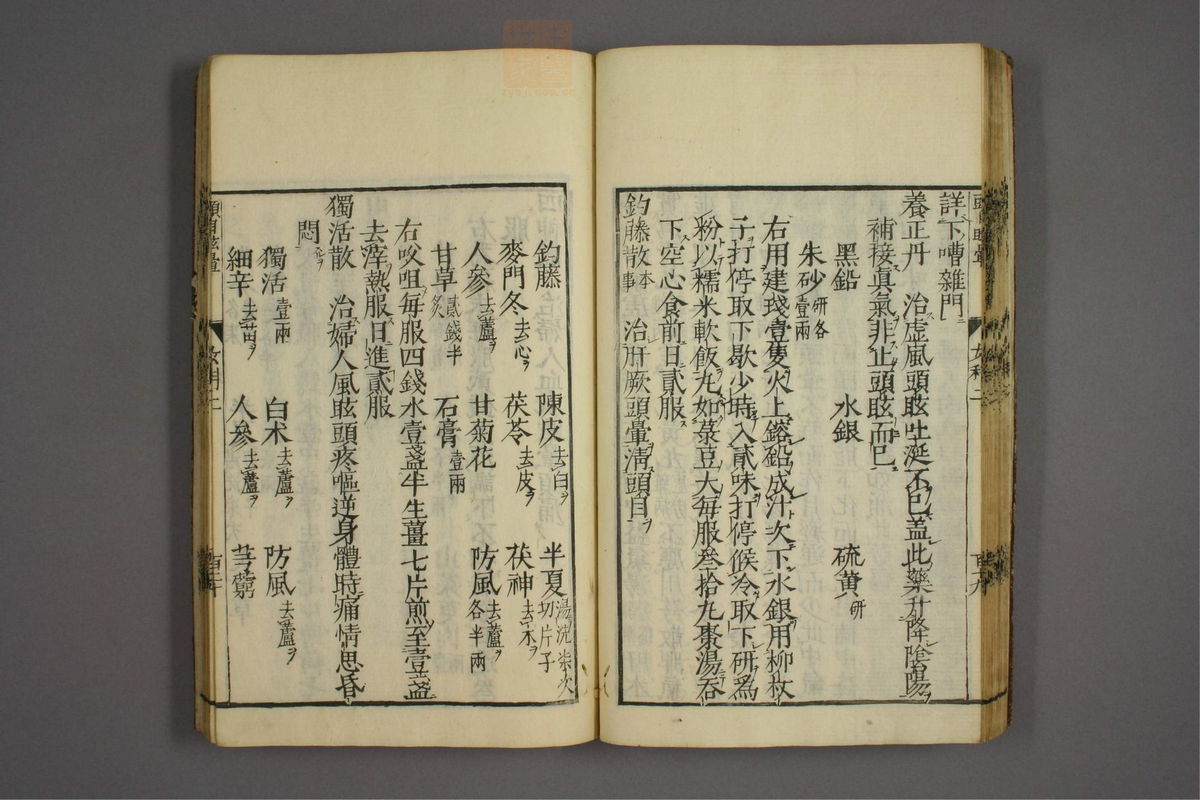 詳下嘈雜門
養正丹 治虛風頭眩吐涎不已盖此藥升降陰陽
補接眞氣非止頭眩而已
黑鉛 水銀 硫黄研
朱砂研各壹兩
右用建琖壹隻火上鎔鉛成汁次下水銀用柳杖
子打停取下歇少時入貳味打停候冷取下研爲
粉以糯米軟飯丸如菉豆大每服叁拾丸棗湯吞
下空心食前日貳服
釣藤散本事 治肝厥頭暈淸頭目
釣藤 陳皮去白 半夏湯洗柒次切片子
麥門冬去心 茯苓去皮 茯神去木
人參去蘆 甘菊花 防風去蘆各半兩
甘草貳錢半炙 石膏壹兩
右㕮咀每服四錢水壹盞半生薑七片煎至壹盞
去滓熱服日進貳服
獨活散 治婦人風眩頭疼嘔逆身體時痛情思昏
悶
獨活壹兩 白术去蘆 防風去蘆
細辛去苗 人參去蘆 芎藭